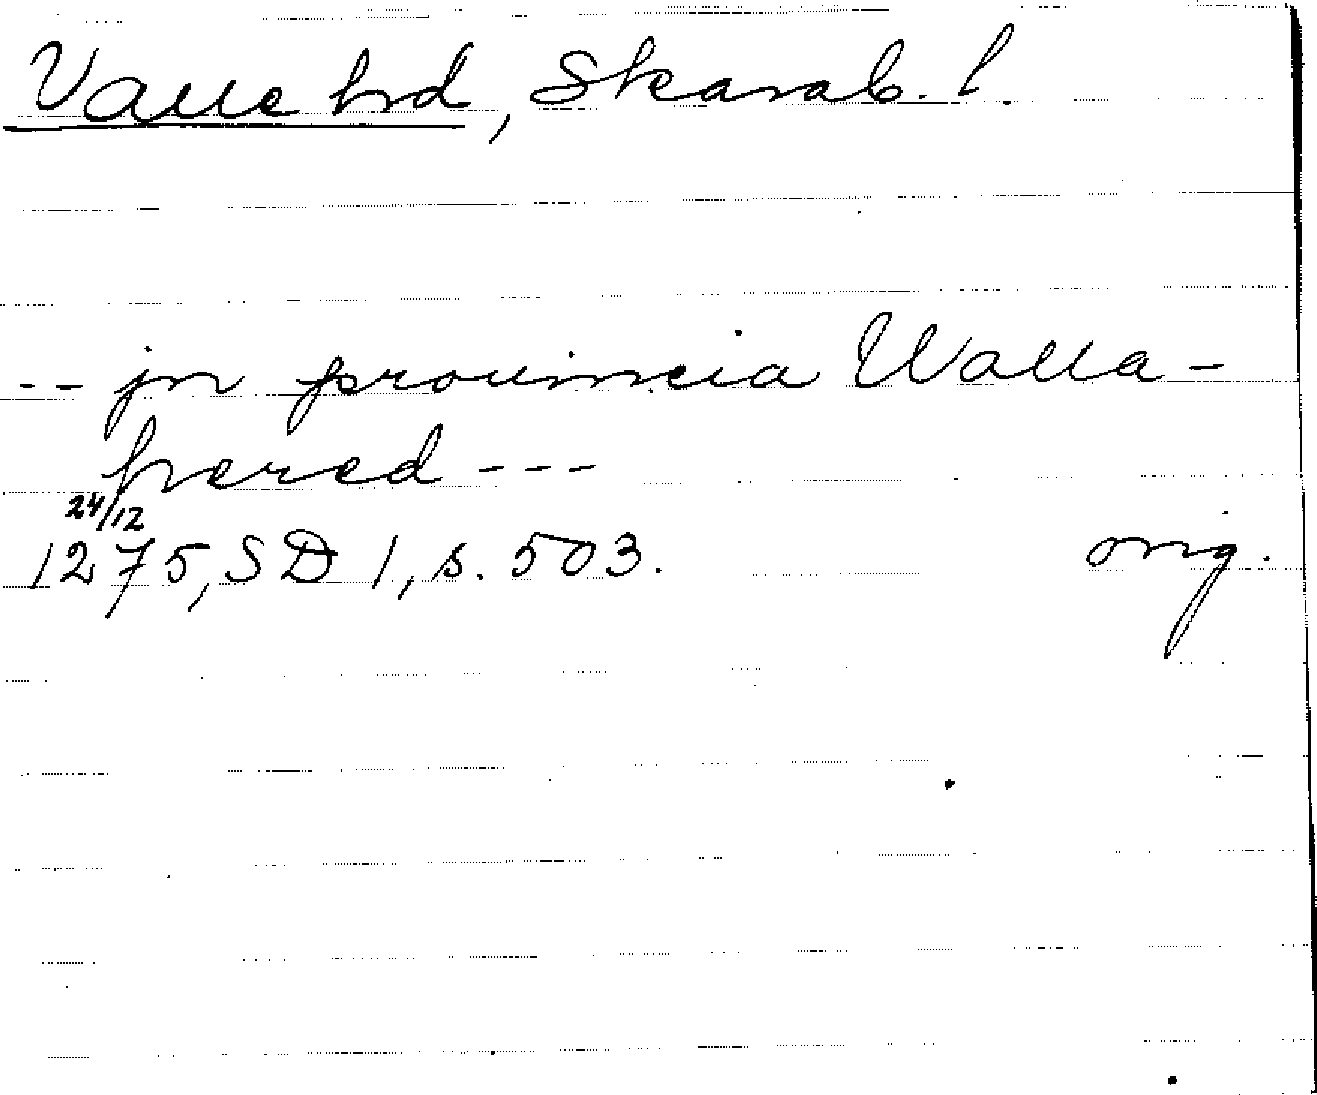 Valle hd, Skarab. l.
-- jn prouincia Walla-
hæred ---
24/12
1275, SD 1, s. 503. orig.